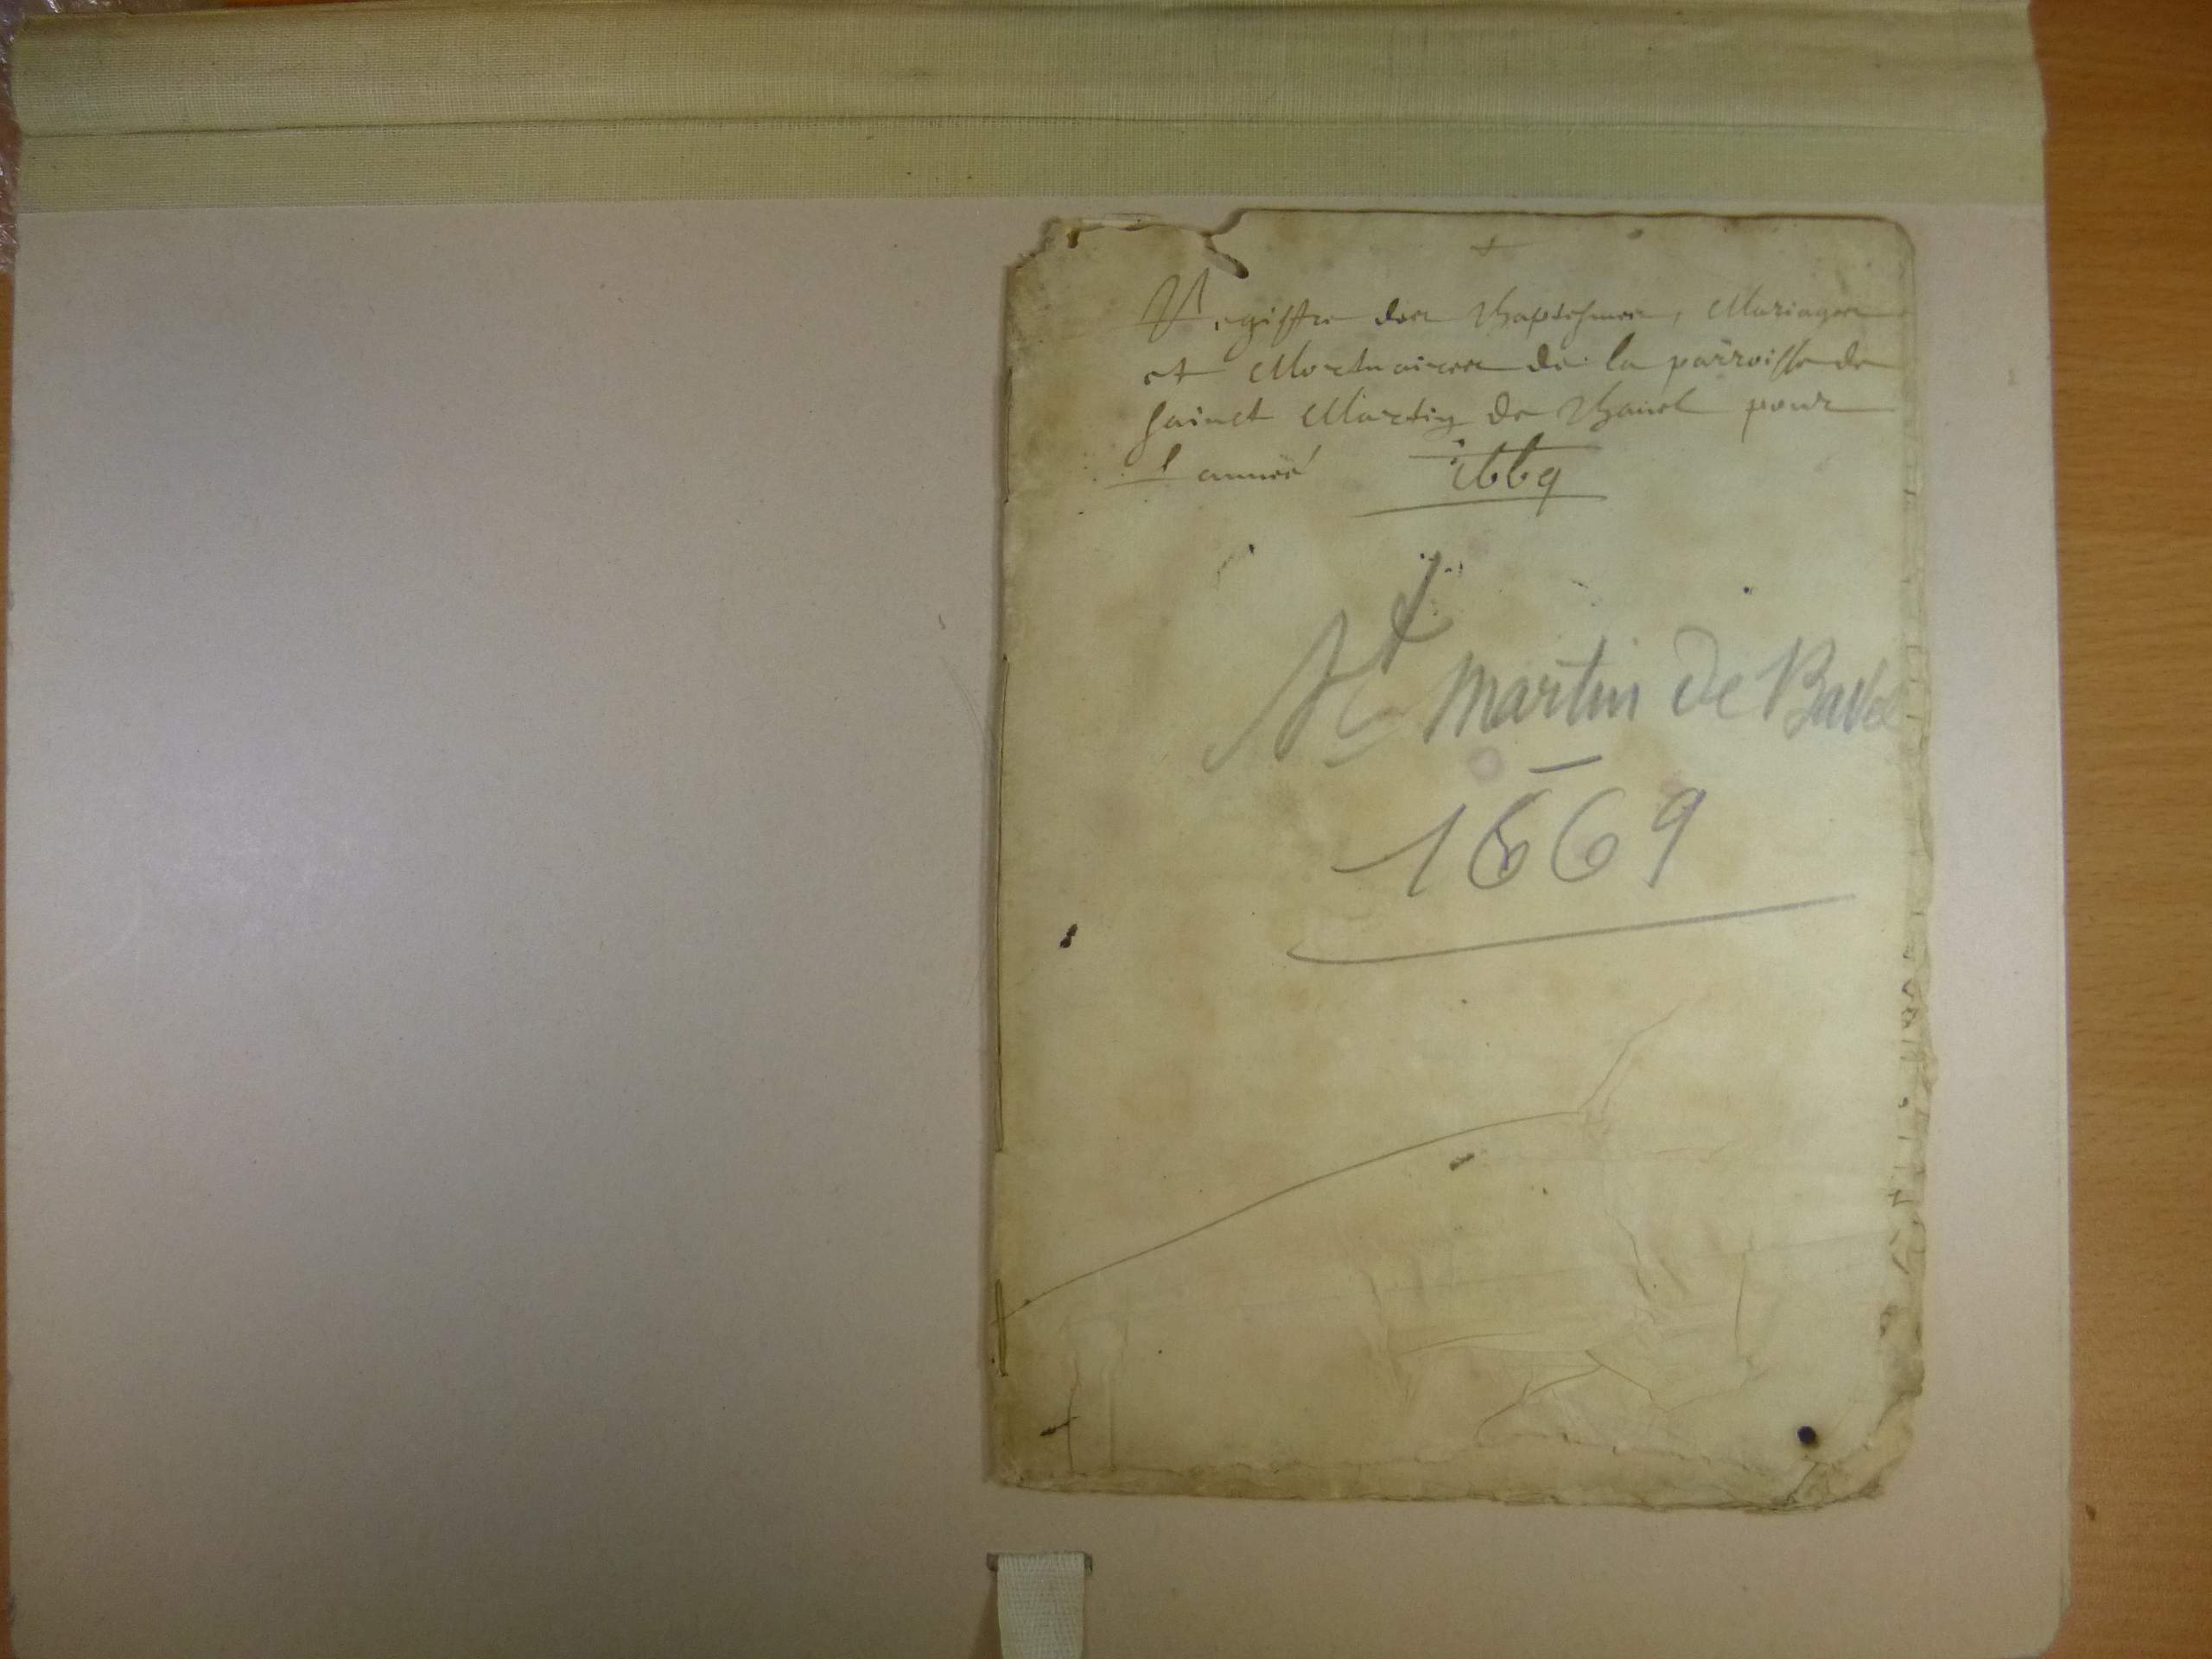 Registre des Baptesmes, Mariages
et Mortuaires de la parroisse de
sainct Martin de Bavel pour
l'anneé 1669
St Martin de Bavel
1669